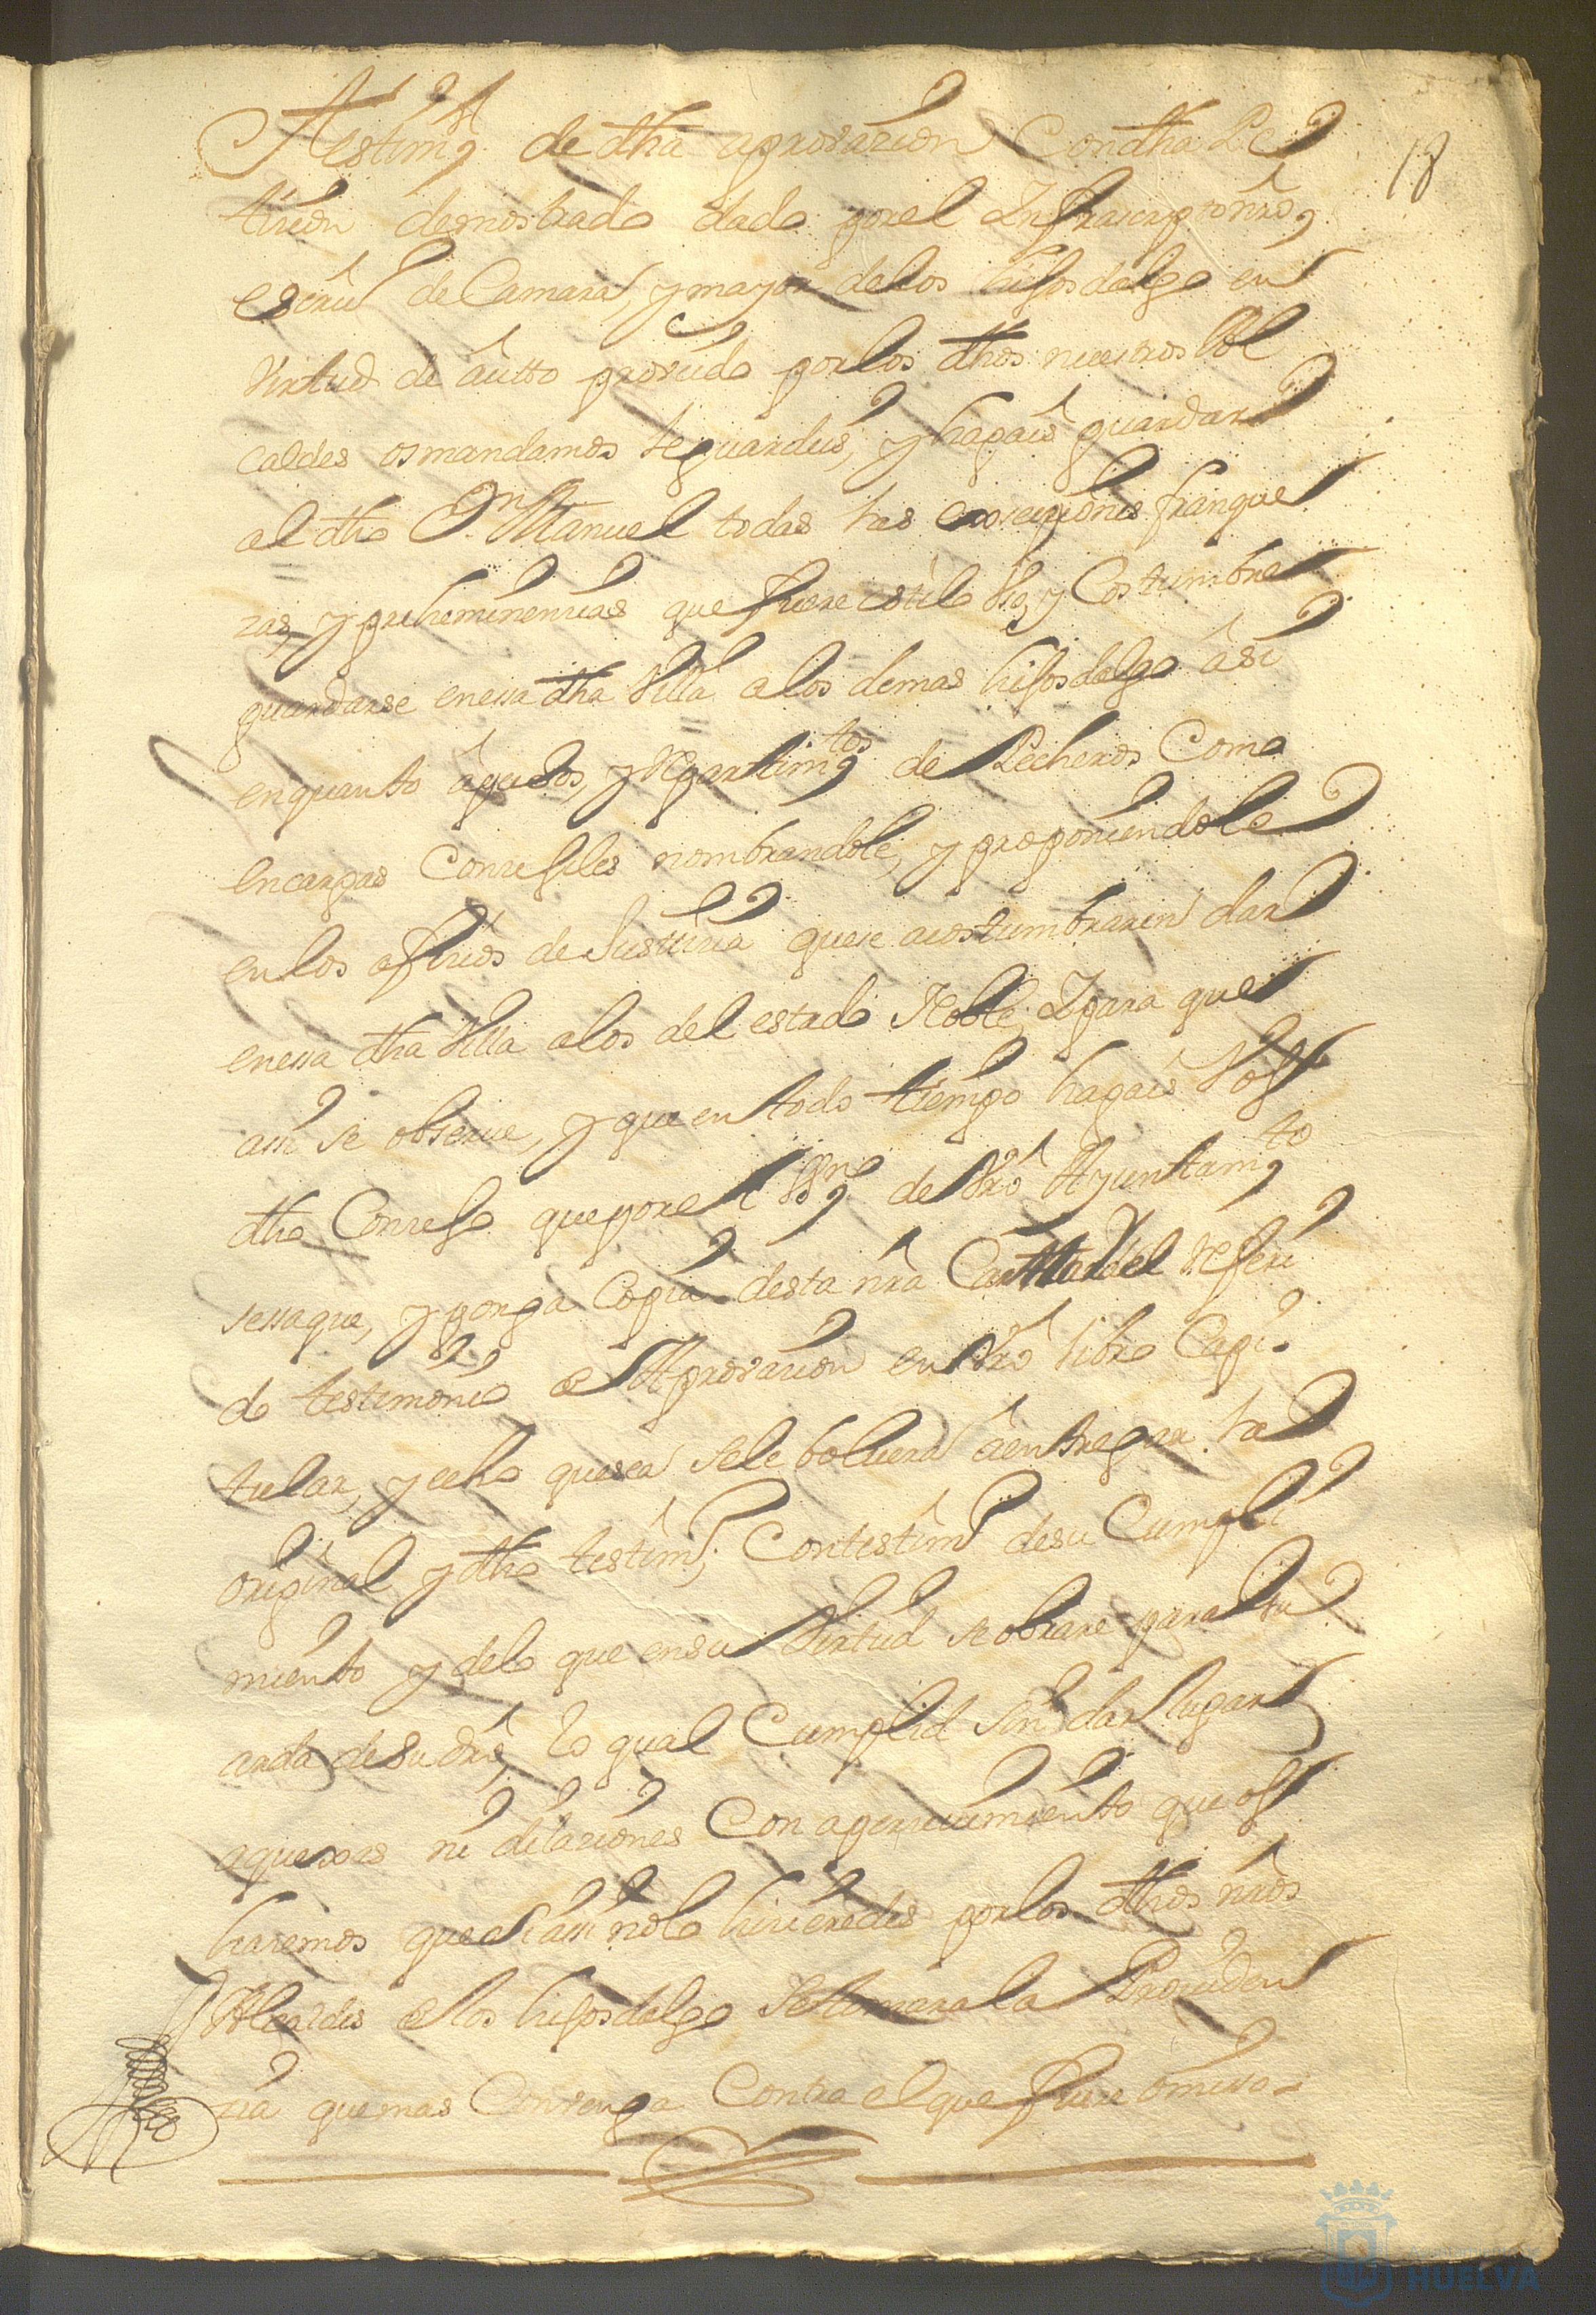 18
Testimº de dha aprovazion Con dha Pe
tizion demostrado dado por el Infraescrpto nro
escriu de Camara, y mayor de los hijos dalgo en
virtud de autto proveido por los dhos nuestros Al
caldes os mandamos le guardeis, y hagais guardar
al dho Dn Manuel todas las exsempziones franque
zas, y preheminenzias que fuere estilo Vso, y Costumbre
guardarse en essa dha Villa a los demas hijos dalgo asi
en quanto a pechos, y Repartimtos de Pecheros Como
en cargas Conzejiles nombrandole, y proponiendole
en los ofizios de Justizia que se acostumbraren dar
en essa dha Villa a los del estado Noble, Y para que
assi se obserue, y que en todo tiempo hagais Vos
dho Conzejo que por el Ssno de Vro Ayuntamto
se saque, y ponga Copia desta nra Carta del Referi
do testimonio de Aprovazion en Vro libro Capi
tular, y echo que sea se le boluera a entregar la
original y dho testimo, Con testimo de su Cumpli
miento y de lo que en su Virtud se obrare para su
arda de su dro, lo qual Cumplid sin dar lugar
a quexas ni dilaziones Con aperziuimiento que os
haremos que si assi no lo hizieredes por los dhos nros
Alcaldes de los hijos dalgo se tomara la Prouiden
zia que mas Conuenga Contra el que fuere omisso
HUELVA